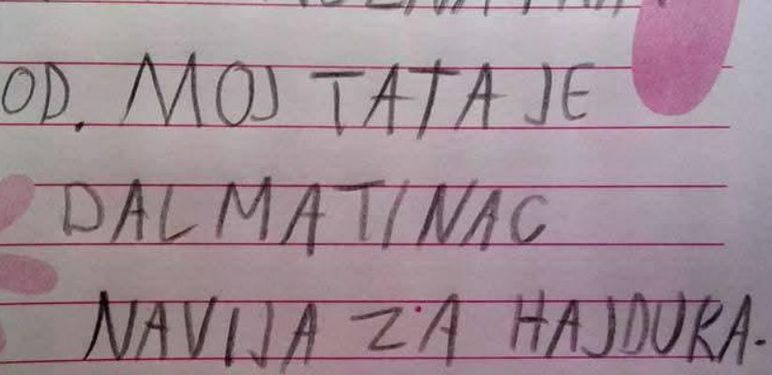 OD. MOJ TATA JE
DALMATINAC
NAVIJA ZA HAJDUKA.